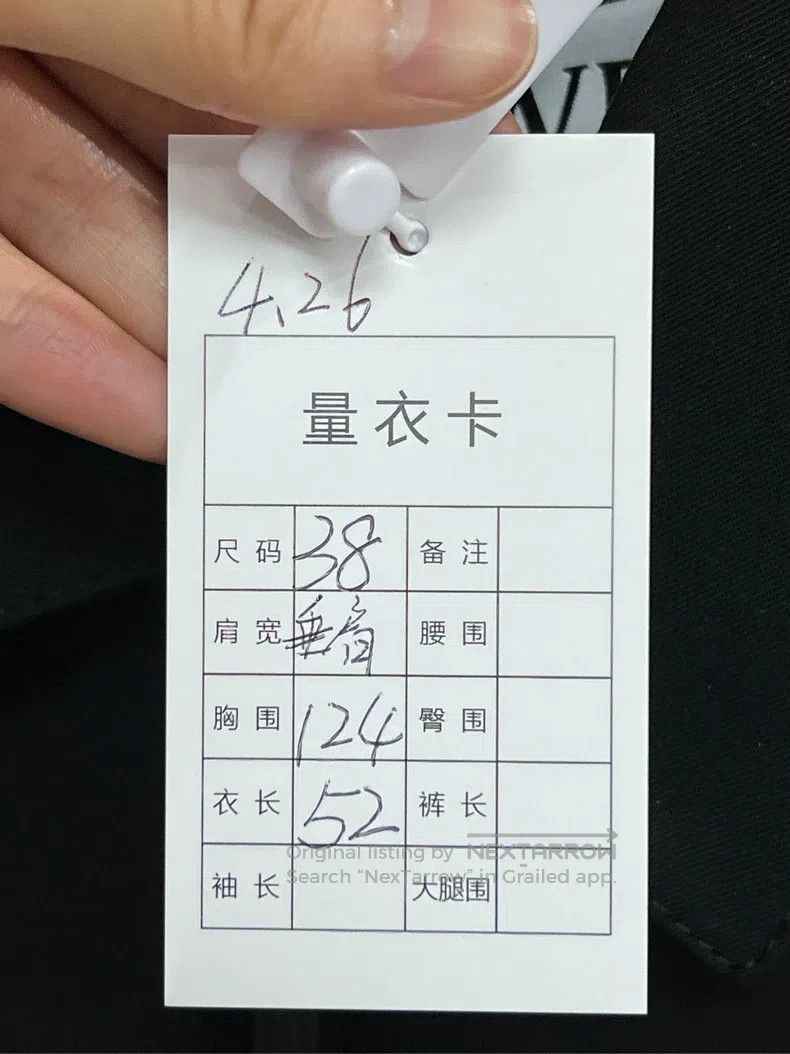 4.26
量衣卡
尺码 38 备注
肩宽 垂肩 腰围
胸围 124 臀围
衣长 52 裤长
袖长 大腿围
Original listing by NEXTARROW
Search “NexTarrow” in Grailed app.